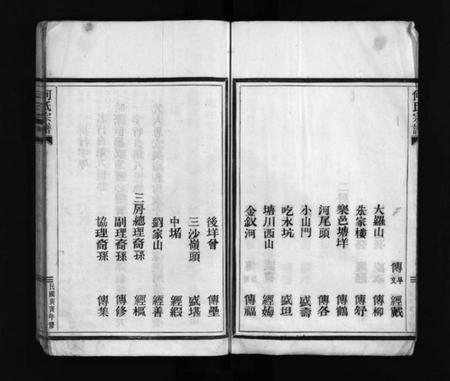 何氏宗譜
大羅山 傳文 平 經戴
朱家樓 傳柳
樂邑塘垟 傳舒
河尾頭 傳鶴
小山門 傳各
吃水坑 盛壽
塘川西山 盛坦
金釵河 經海
傳福
何氏宗譜
後垟曾 傳壘
三沙嶺頭 盛堪
中堡 經緞
劉家山 經善
二房總理裔孫 經樞
副理裔孫 傳修
協理裔孫 傳集
民國庚寅年修